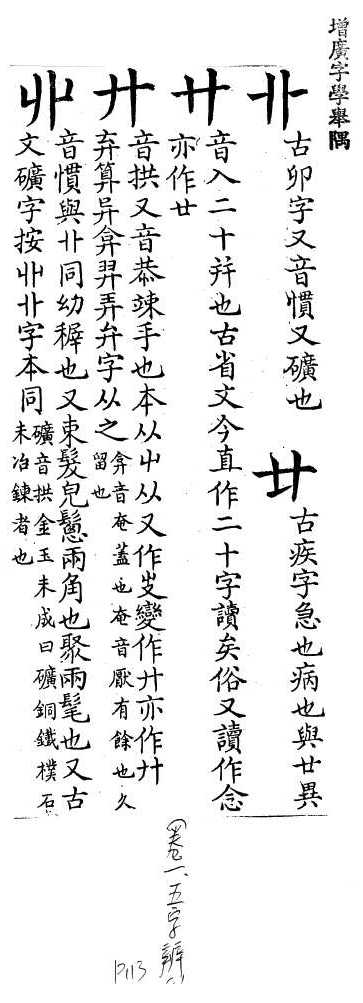 增廣字學舉隅
卝 古卯字又音慣又礦也 𠥻 古疾字急也病也與廿異
廾 音入二十幷也古省文今直作二十字讀矣俗又讀作念
亦作廿
廾 音拱又音恭竦手也本从屮从又作𠬞變作廾亦作廾
弃算异弇羿弄弁字从之 弇音奄蓋也奄音厭有餘也久
留也
丱 音慣與卝同幼穉也又束髮皃鬢兩角也聚兩髦也又古
文礦字按丱卝字本同 礦音拱金玉未成曰礦銅鐵樸石
未冶鍊者也
(卷一、五字辨
P113